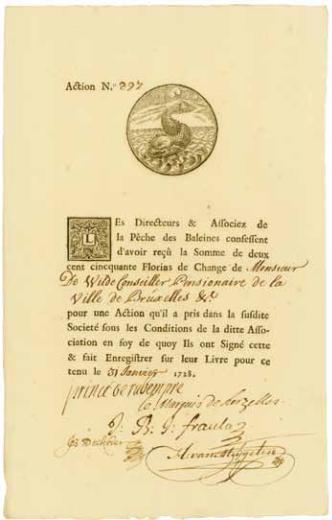 Action N.º 297
LEs Directeurs & Associez de
la Pêche des Baleines confessent
d'avoir reçû la Somme de deux
cent cincquante Florins de Change de Monsieur
De Wilde Conseiller Pensionaire de la
Ville de Brúxelles &c
pour une Action qu'il a pris dans la susdite
Societé sous les Conditions de la ditte Asso-
ciation en foy de quoy Ils ont Signé cette
& fait Enregistrer sur leur Livre pour ce
tenu le 31 Janvier 1728.
prince de rubempre
le Marquis de
J: B: J: fraula